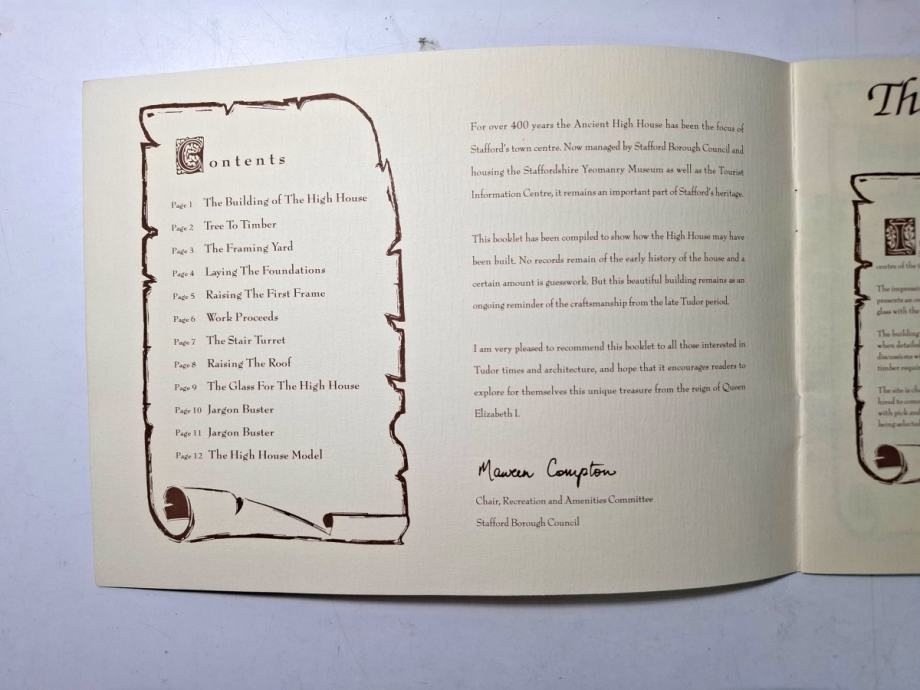 Contents
Page 1 The Building of The High House
Page 2 Tree To Timber
Page 3 The Framing Yard
Page 4 Laying The Foundations
Page 5 Raising The First Frame
Page 6 Work Proceeds
Page 7 The Stair Turret
Page 8 Raising The Roof
Page 9 The Glass For The High House
Page 10 Jargon Buster
Page 11 Jargon Buster
Page 12 The High House Model
For over 400 years the Ancient High House has been the focus of
Stafford's town centre. Now managed by Stafford Borough Council and
housing the Staffordshire Yeomanry Museum as well as the Tourist
Information Centre, it remains an important part of Stafford's heritage.
This booklet has been compiled to show how the High House may have
been built. No records remain of the early history of the house and a
certain amount is guesswork. But this beautiful building remains as an
ongoing reminder of the craftsmanship from the late Tudor period.
I am very pleased to recommend this booklet to all those interested in
Tudor times and architecture, and hope that it encourages readers to
explore for themselves this unique treasure from the reign of Queen
Elizabeth I.
Maureen Compton
Chair, Recreation and Amenities Committee
Stafford Borough Council
Th
I
centre of the
The impress
presents an
glass with the
The building
when detailed
discussions w
timber requi
The site is
hired to
with pick and
being selected